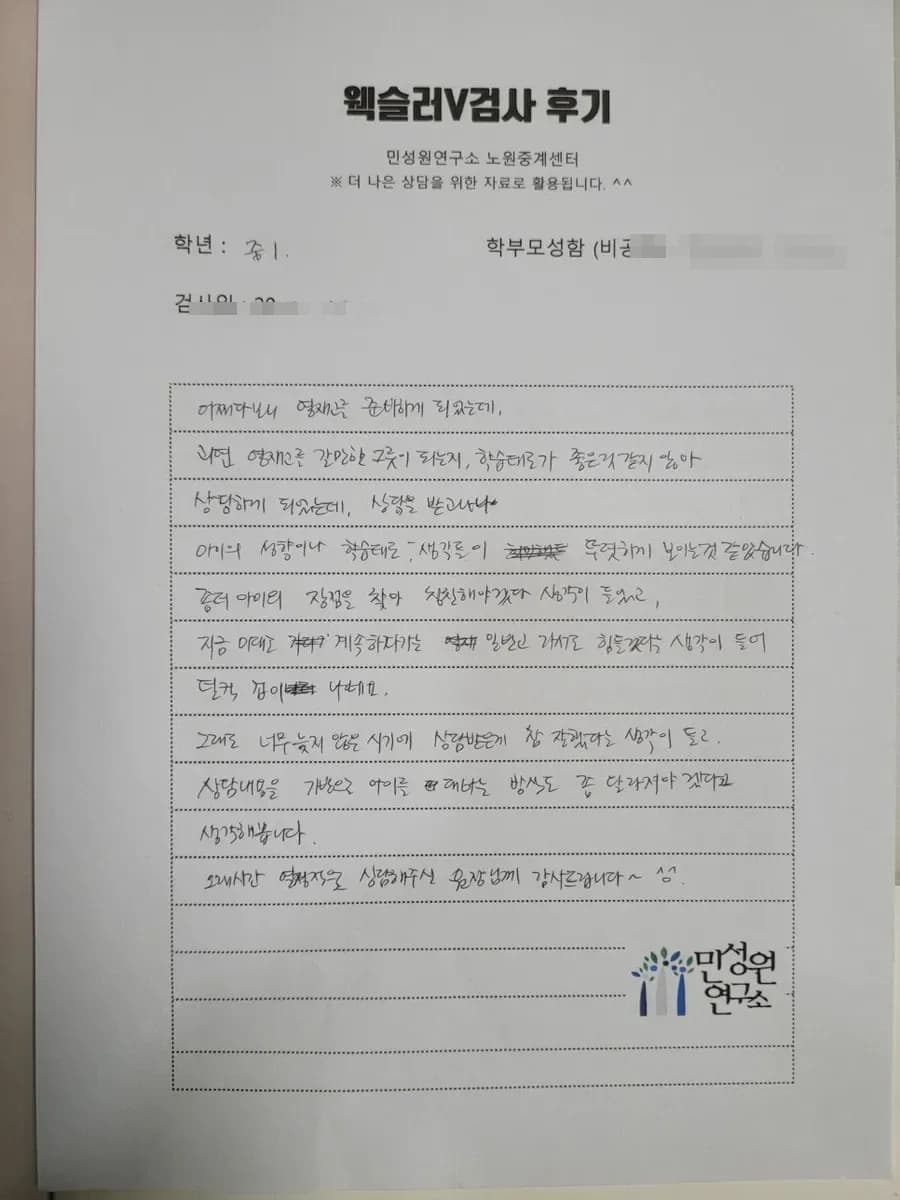 웩슬러V검사 후기
민성원연구소 노원중계센터
※ 더 나은 상담을 위한 자료로 활용됩니다. ^^
학년 : 중1.
학부모성함 (비공
어쩌다보니 영재고를 준비하게 되었는데,
과연 영재고를 갈만한 그릇이 되는지, 학습태도가 좋은것 같지 않아
상담하게 되었는데, 상담을 받고나니
아이의 성향이나 학습태도, 생각들이 뚜렷하게 보이는것 같았습니다.
좀더 아이의 장점을 찾아 칭찬해야겠다 생각이 들었고,
지금 이대로 계속하다가는 일반고 가서도 힘들겠다는 생각이 들어
덜컥 겁이 나네요.
그래도 너무 늦지 않은 시기에 상담받은게 참 잘했다는 생각이 들고.
상담내용을 기반으로 아이를 대하는 방식도 좀 달라져야겠다고
생각해봅니다.
오래시간 열정적으로 상담해주신 원장님께 감사드립니다~ ^^.
민성원
연구소